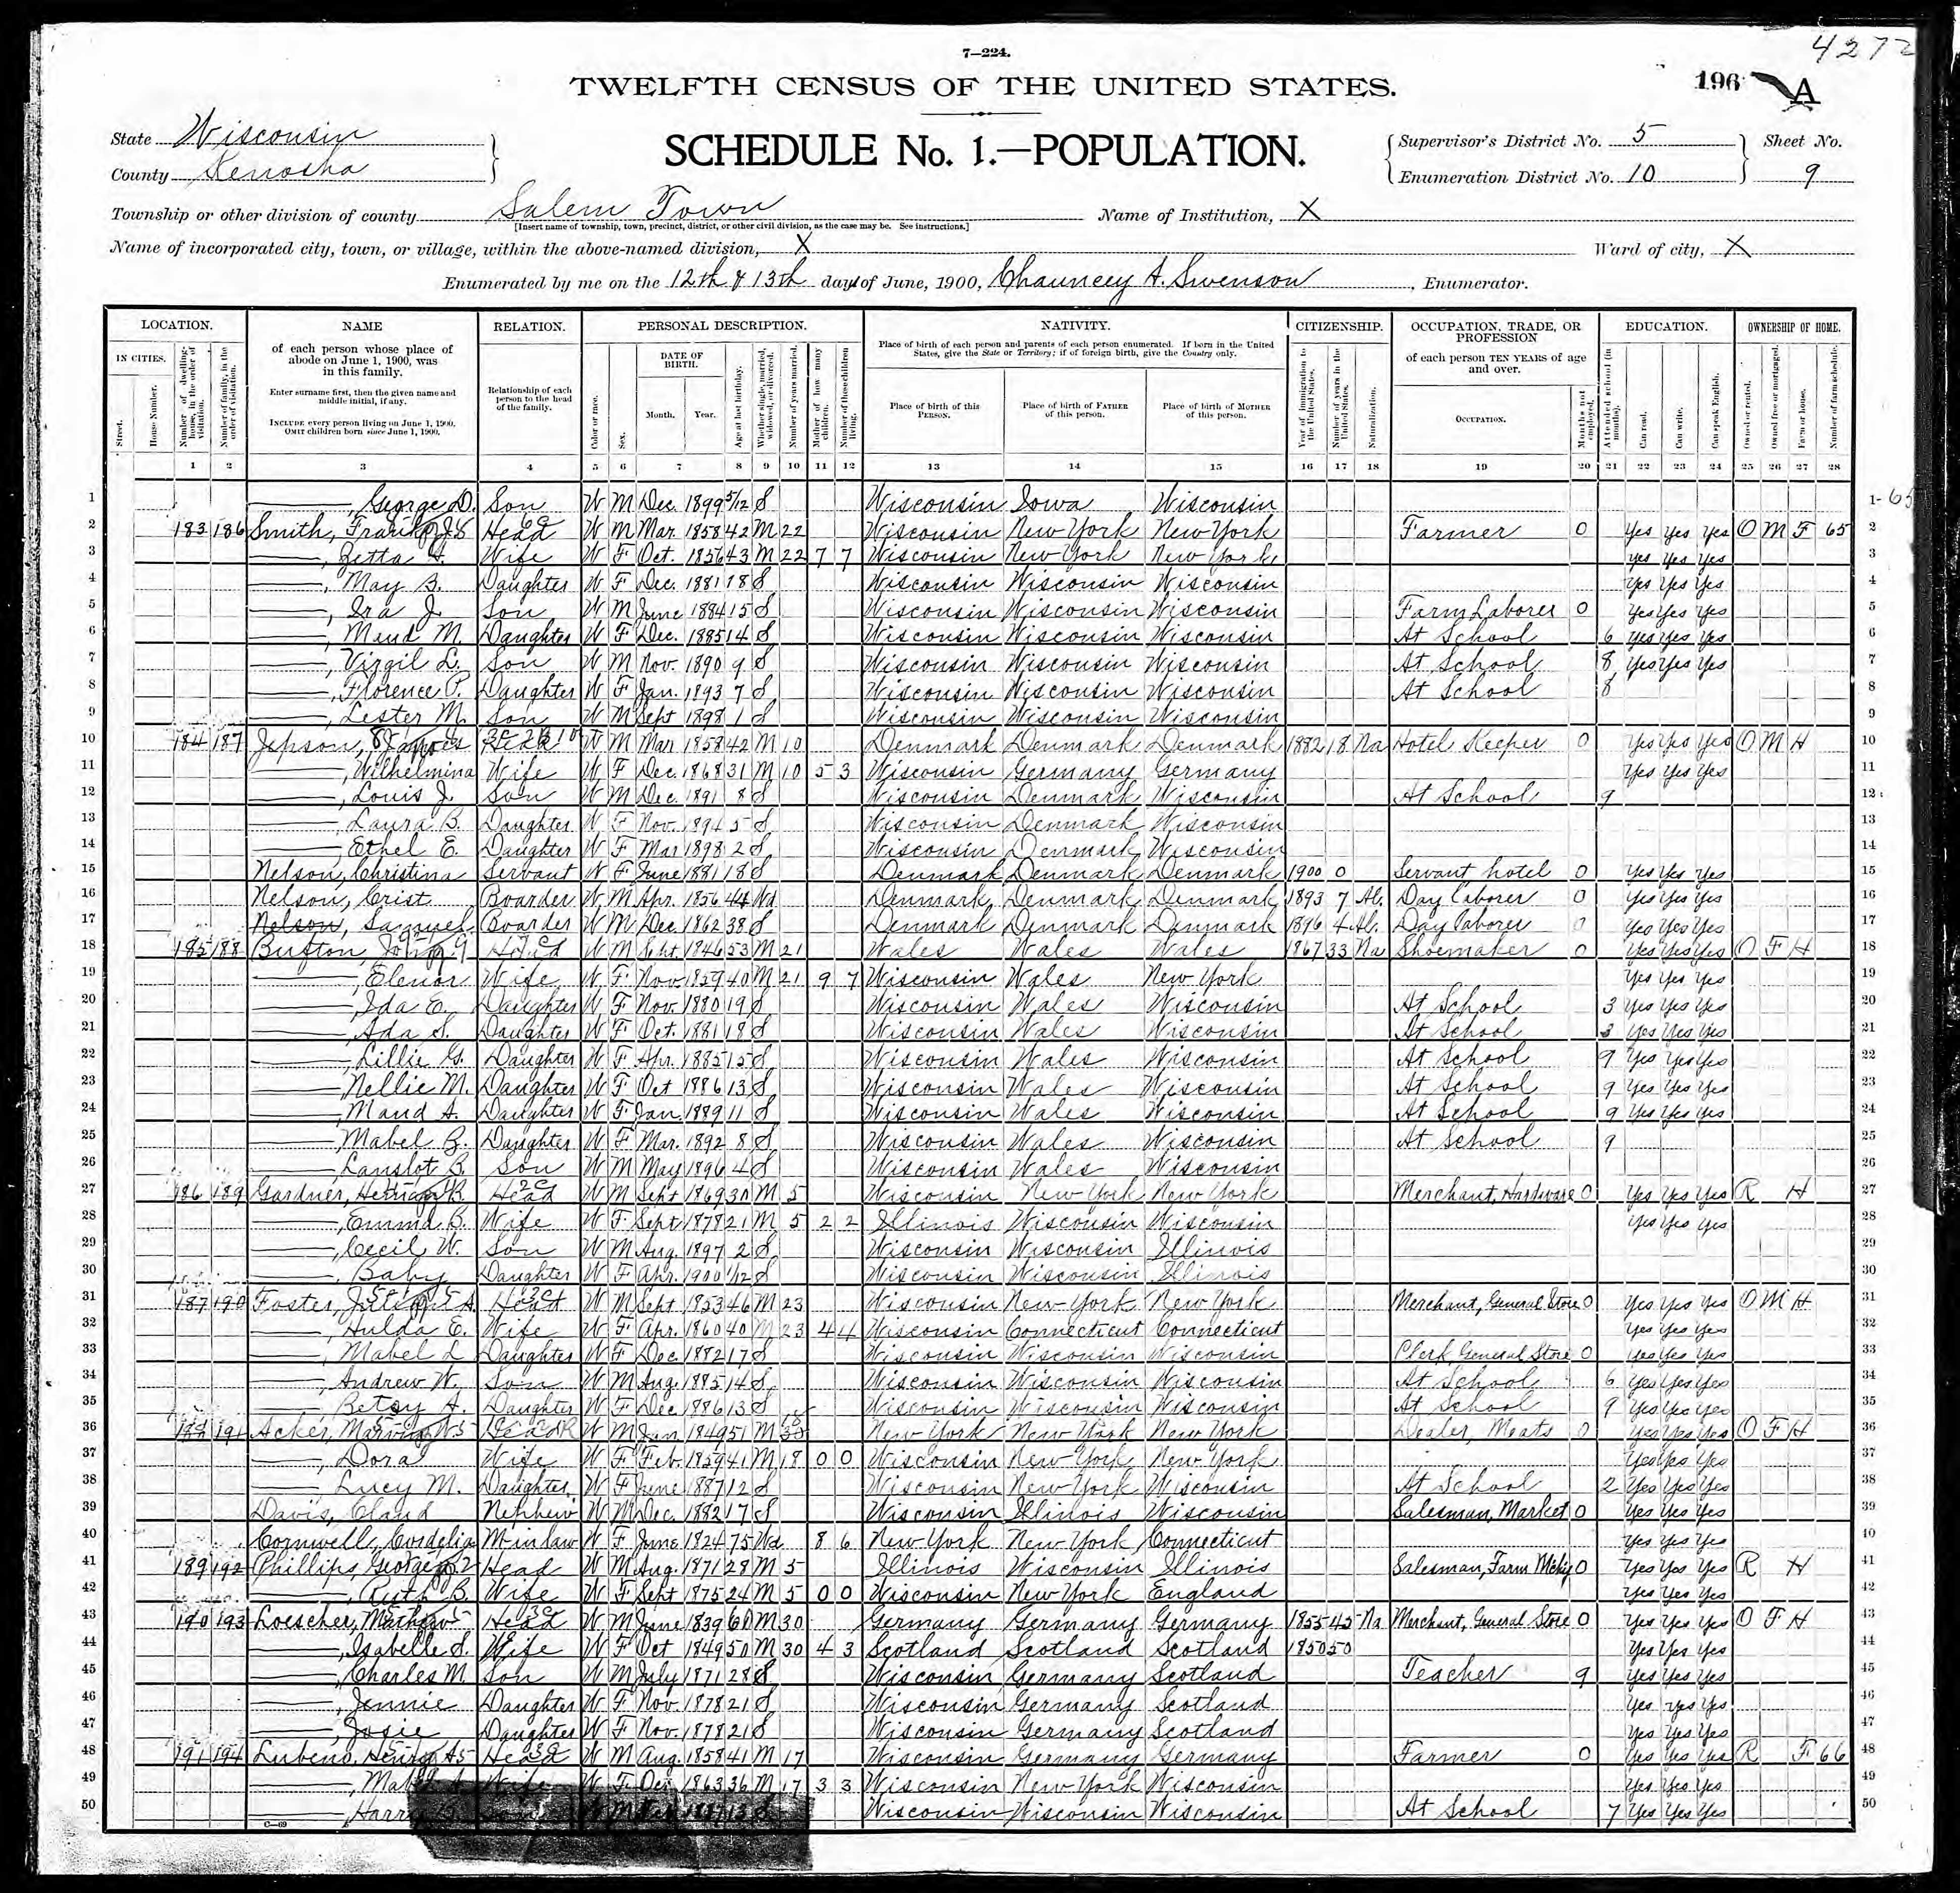 4272
7—224.
196 A
TWELFTH CENSUS OF THE UNITED STATES.
State Wisconsin
County Kenosha
SCHEDULE No. 1.—POPULATION.
Supervisor's District No. 5
Enumeration District No. 10
Sheet No. 9
Township or other division of county Salem Town
Name of Institution, X
[Insert name of township, town, precinct, district, or other civil division, as the case may be. See instructions.]
Name of incorporated city, town, or village, within the above-named division, X
Ward of city, X
Enumerated by me on the 12th & 13th days of June, 1900, Chauncey A. Swenson, Enumerator.
LOCATION. NAME RELATION. PERSONAL DESCRIPTION. NATIVITY. CITIZENSHIP. OCCUPATION, TRADE, OR PROFESSION EDUCATION. OWNERSHIP OF HOME.
IN CITIES. Street. House Number. Number of dwelling-house, in the order of visitation. Number of family, in the order of visitation.
of each person whose place of abode on June 1, 1900, was in this family.
Enter surname first, then the given name and middle initial, if any.
INCLUDE every person living on June 1, 1900. OMIT children born since June 1, 1900.
Relationship of each person to the head of the family.
Color or race. Sex. DATE OF BIRTH. Month. Year. Age at last birthday. Whether single, married, widowed, or divorced. Number of years married. Mother of how many children. Number of these children living.
Place of birth of each person and parents of each person enumerated. If born in the United States, give the State or Territory; if of foreign birth, give the Country only.
Place of birth of this PERSON. Place of birth of FATHER of this person. Place of birth of MOTHER of this person.
Year of immigration to the United States. Number of years in the United States. Naturalization.
of each person TEN YEARS of age and over. OCCUPATION. Months not employed.
Attended school (in months). Can read. Can write. Can speak English.
Owned or rented. Owned free or mortgaged. Farm or house. Number of farm schedule.
1 2 3 4 5 6 7 8 9 10 11 12 13 14 15 16 17 18 19 20 21 22 23 24 25 26 27 28
1 ——, George D. Son W M Dec. 1899 5/12 S Wisconsin Iowa Wisconsin 1
2 183 186 Smith, Frank Head W M Mar. 1858 42 M 22 Wisconsin New York New York Farmer 0 Yes Yes Yes O M F 65 2
3 ——, Zetta Wife W F Oct. 1856 43 M 22 7 7 Wisconsin New York New York Yes Yes Yes 3
4 ——, May B. Daughter W F Dec. 1881 18 S Wisconsin Wisconsin Wisconsin Yes Yes Yes 4
5 ——, Ira J. Son W M June 1884 15 S Wisconsin Wisconsin Wisconsin Farm Laborer 0 Yes Yes Yes 5
6 ——, Maud M. Daughter W F Dec. 1885 14 S Wisconsin Wisconsin Wisconsin At School 6 Yes Yes Yes 6
7 ——, Virgil L. Son W M Nov. 1890 9 S Wisconsin Wisconsin Wisconsin At School 8 Yes Yes Yes 7
8 ——, Florence P. Daughter W F Jan. 1893 7 S Wisconsin Wisconsin Wisconsin At School 8 8
9 ——, Lester M. Son W M Sept 1898 1 S Wisconsin Wisconsin Wisconsin 9
10 184 187 Jepson, James Head W M Mar 1858 42 M 10 Denmark Denmark Denmark 1882 18 Na Hotel Keeper 0 Yes Yes Yes O M H 10
11 ——, Wilhelmina Wife W F Dec. 1868 31 M 10 5 3 Wisconsin Germany Germany Yes Yes Yes 11
12 ——, Louis J. Son W M Dec. 1891 8 S Wisconsin Denmark Wisconsin At School 9 12
13 ——, Laura B. Daughter W F Nov. 1894 5 S Wisconsin Denmark Wisconsin 13
14 ——, Ethel E. Daughter W F Mar 1898 2 S Wisconsin Denmark Wisconsin 14
15 Nelson, Christina Servant W F June 1881 18 S Denmark Denmark Denmark 1900 0 Servant hotel 0 Yes Yes Yes 15
16 Nelson, Crist Boarder W M Apr. 1856 44 Wd Denmark Denmark Denmark 1893 7 Al. Day laborer 0 Yes Yes Yes 16
17 Nelson, Samuel Boarder W M Dec 1862 38 S Denmark Denmark Denmark 1896 4 Al. Day laborer 0 Yes Yes Yes 17
18 185 188 Bufton, John Head W M Sept. 1846 53 M 21 Wales Wales Wales 1867 33 Na Shoemaker 0 Yes Yes Yes O F H 18
19 ——, Elenor Wife W F Nov 1859 40 M 21 9 7 Wisconsin Wales New York Yes Yes Yes 19
20 ——, Ida E. Daughter W F Nov. 1880 19 S Wisconsin Wales Wisconsin At School 3 Yes Yes Yes 20
21 ——, Ada S. Daughter W F Oct. 1881 18 S Wisconsin Wales Wisconsin At School 3 Yes Yes Yes 21
22 ——, Lillie G. Daughter W F Apr. 1885 15 S Wisconsin Wales Wisconsin At School 9 Yes Yes Yes 22
23 ——, Nellie M. Daughter W F Oct 1886 13 S Wisconsin Wales Wisconsin At School 9 Yes Yes Yes 23
24 ——, Maud A. Daughter W F Jan. 1889 11 S Wisconsin Wales Wisconsin At School 9 Yes Yes Yes 24
25 ——, Mabel Z. Daughter W F Mar. 1892 8 S Wisconsin Wales Wisconsin At School 9 25
26 ——, Lanslot B. Son W M May 1896 4 S Wisconsin Wales Wisconsin 26
27 186 189 Gardner, Herman B. Head W M Sept 1869 30 M 5 Wisconsin New York New York Merchant, Hardware 0 Yes Yes Yes R H 27
28 ——, Emma B. Wife W F Sept 1878 21 M 5 2 2 Illinois Wisconsin Wisconsin Yes Yes Yes 28
29 ——, Cecil W. Son W M Aug. 1897 2 S Wisconsin Wisconsin Illinois 29
30 ——, Baby Daughter W F Apr. 1900 1/12 S Wisconsin Wisconsin Illinois 30
31 187 190 Foster, A. Head W M Sept 1853 46 M 23 Wisconsin New York New York Merchant, General Store 0 Yes Yes Yes O M H 31
32 ——, Hulda E. Wife W F Apr. 1860 40 M 23 4 4 Wisconsin Connecticut Connecticut Yes Yes Yes 32
33 ——, Mabel L Daughter W F Dec. 1882 17 S Wisconsin Wisconsin Wisconsin Clerk, General Store 0 Yes Yes Yes 33
34 ——, Andrew W. Son W M Aug. 1885 14 S Wisconsin Wisconsin Wisconsin At School 6 Yes Yes Yes 34
35 ——, Betsy H. Daughter W F Dec 1886 13 S Wisconsin Wisconsin Wisconsin At School 9 Yes Yes Yes 35
36 191 Acker, Marvin Head W M Jan 1849 51 M New York New York New York Dealer, Meats 0 Yes Yes Yes O F H 36
37 ——, Dora Wife W F Feb. 1859 41 M 18 0 0 Wisconsin New York New York Yes Yes Yes 37
38 ——, Lucy M. Daughter W F June 1887 12 S Wisconsin New York Wisconsin At School 2 Yes Yes Yes 38
39 Davis, Claud Nephew W M Dec. 1882 17 S Wisconsin Illinois Wisconsin Salesman, Market 0 Yes Yes Yes 39
40 Cornwell, Cordelia M-in law W F June 1824 75 Wd 8 6 New York New York Connecticut Yes Yes Yes 40
41 189 192 Phillips, George Head W M Aug. 1871 28 M 5 Illinois Wisconsin Illinois Salesman, Farm Mchy 0 Yes Yes Yes R H 41
42 ——, Ruth B. Wife W F Sept 1875 24 M 5 0 0 Wisconsin New York England Yes Yes Yes 42
43 190 193 Loescher, Mathew Head W M June 1839 60 M 30 Germany Germany Germany 1855 45 Na Merchant, General Store 0 Yes Yes Yes O F H 43
44 ——, Isabelle S. Wife W F Oct 1849 50 M 30 4 3 Scotland Scotland Scotland 1850 50 Yes Yes Yes 44
45 ——, Charles M. Son W M July 1871 28 S Wisconsin Germany Scotland Teacher 9 Yes Yes Yes 45
46 ——, Jennie Daughter W F Nov. 1878 21 S Wisconsin Germany Scotland Yes Yes Yes 46
47 ——, Josie Daughter W F Nov. 1878 21 S Wisconsin Germany Scotland Yes Yes Yes 47
48 191 194 Lubeno, Henry Head W M Aug. 1858 41 M 17 Wisconsin Germany Germany Farmer 0 Yes Yes Yes R F 66 48
49 ——, Mabel A. Wife W F Dec 1863 36 M 17 3 3 Wisconsin New York Wisconsin Yes Yes Yes 49
50 ——, Harry Son W M 13 S Wisconsin Wisconsin Wisconsin At School 7 Yes Yes Yes 50
C—69